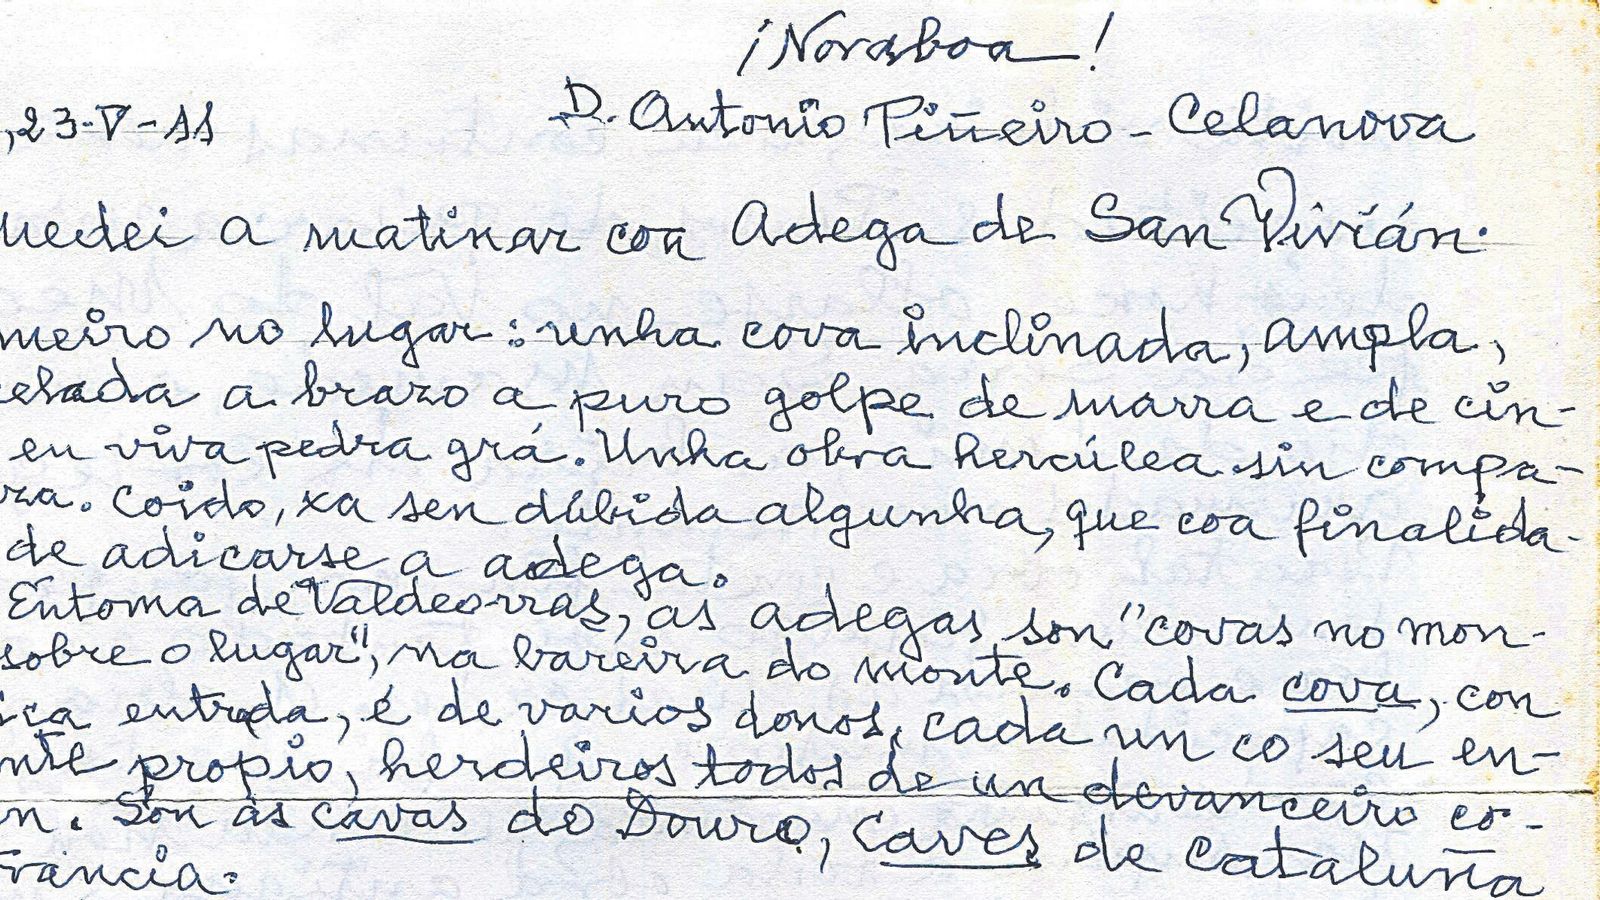 ¡Noraboa!
,23-V-11
D. Antonio Piñeiro - Celanova
uedei a matinar coa Adega de San Vivián.
meiro no lugar: unha cova inclinada, ampla,
celada a brazo a puro golpe de marra e de cin-
en viva pedra grá. Unha obra hercúlea sin compa-
za. Coido, xa sen dúbida algunha, que coa finalida-
de adicarse a adega.
Entoma de Valdeorras, as adegas son "covas no mon-
sobre o lugar", na bareira do monte. Cada cova, con
ica entrada, é de varios donos, cada un co seu en-
nte propio, herdeiros todos de un devanceiro co-
n. Son as cavas do Douro, Caves de Cataluña
Francia.